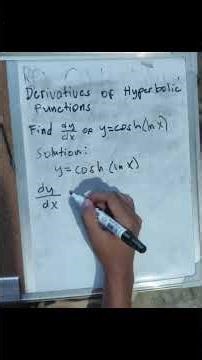 Derivatives of Hyperbolic
Functions
Find dy/dx of y=cosh(ln x)
Solution:
y=cosh(ln x)
dy/dx